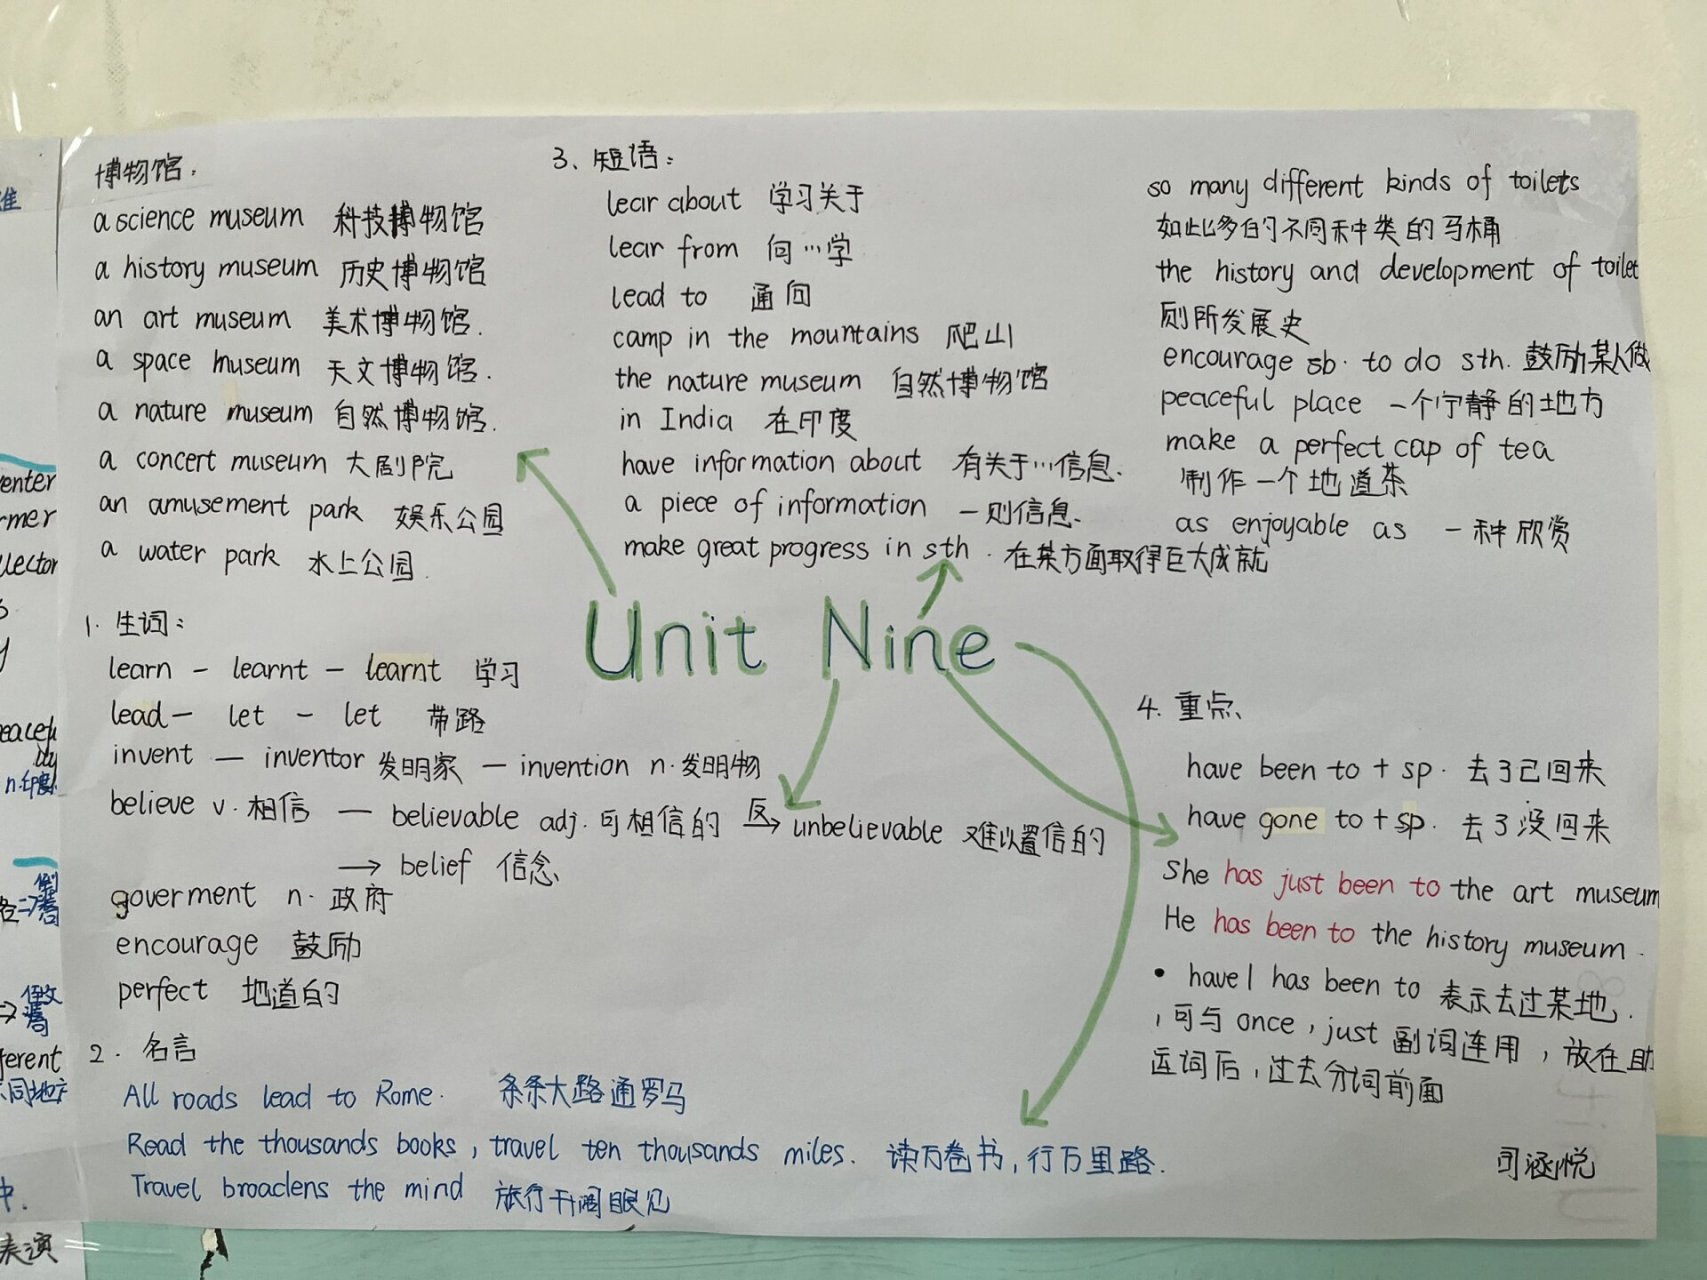 博物馆.
a science museum 科技博物馆
a history museum 历史博物馆
an art museum 美术博物馆.
a space museum 天文博物馆.
a nature museum 自然博物馆.
a concert museum 大剧院
an amusement park 娱乐公园
a water park 水上公园.
1. 生词:
learn - learnt - learnt 学习
lead - let - let 带路
invent — inventor 发明家 — invention n. 发明物
believe v. 相信 — believable adj. 可相信的 反→ unbelievable 难以置信的
→ belief 信念
goverment n. 政府
encourage 鼓励
perfect 地道的
2. 名言
All roads lead to Rome. 条条大路通罗马
Read the thousands books, travel ten thousands miles. 读万卷书,行万里路.
Travel broaclens the mind 旅行开阔眼见
3、短语:
lear about 学习关于
lear from 向…学
lead to 通向
camp in the mountains 爬山
the nature museum 自然博物馆
in India 在印度
have information about 有关于…信息.
a piece of information 一则信息.
make great progress in sth. 在某方面取得巨大成就
Unit Nine
so many different kinds of toilets
如此多的不同种类的马桶
the history and development of toilet
厕所发展史
encourage sb. to do sth. 鼓励某人做
peaceful place 一个宁静的地方
make a perfect cap of tea
制作一个地道茶
as enjoyable as 一种欣赏
4. 重点、
have been to + sp. 去了已回来
have gone to + sp. 去了没回来
She has just been to the art museum
He has been to the history museum.
• have/ has been to 表示去过某地.
,可与 once, just 副词连用,放在助
运词后,过去分词前面
司涵悦
venter
rmer
llector
n.印度
ferent
不同地方
表演